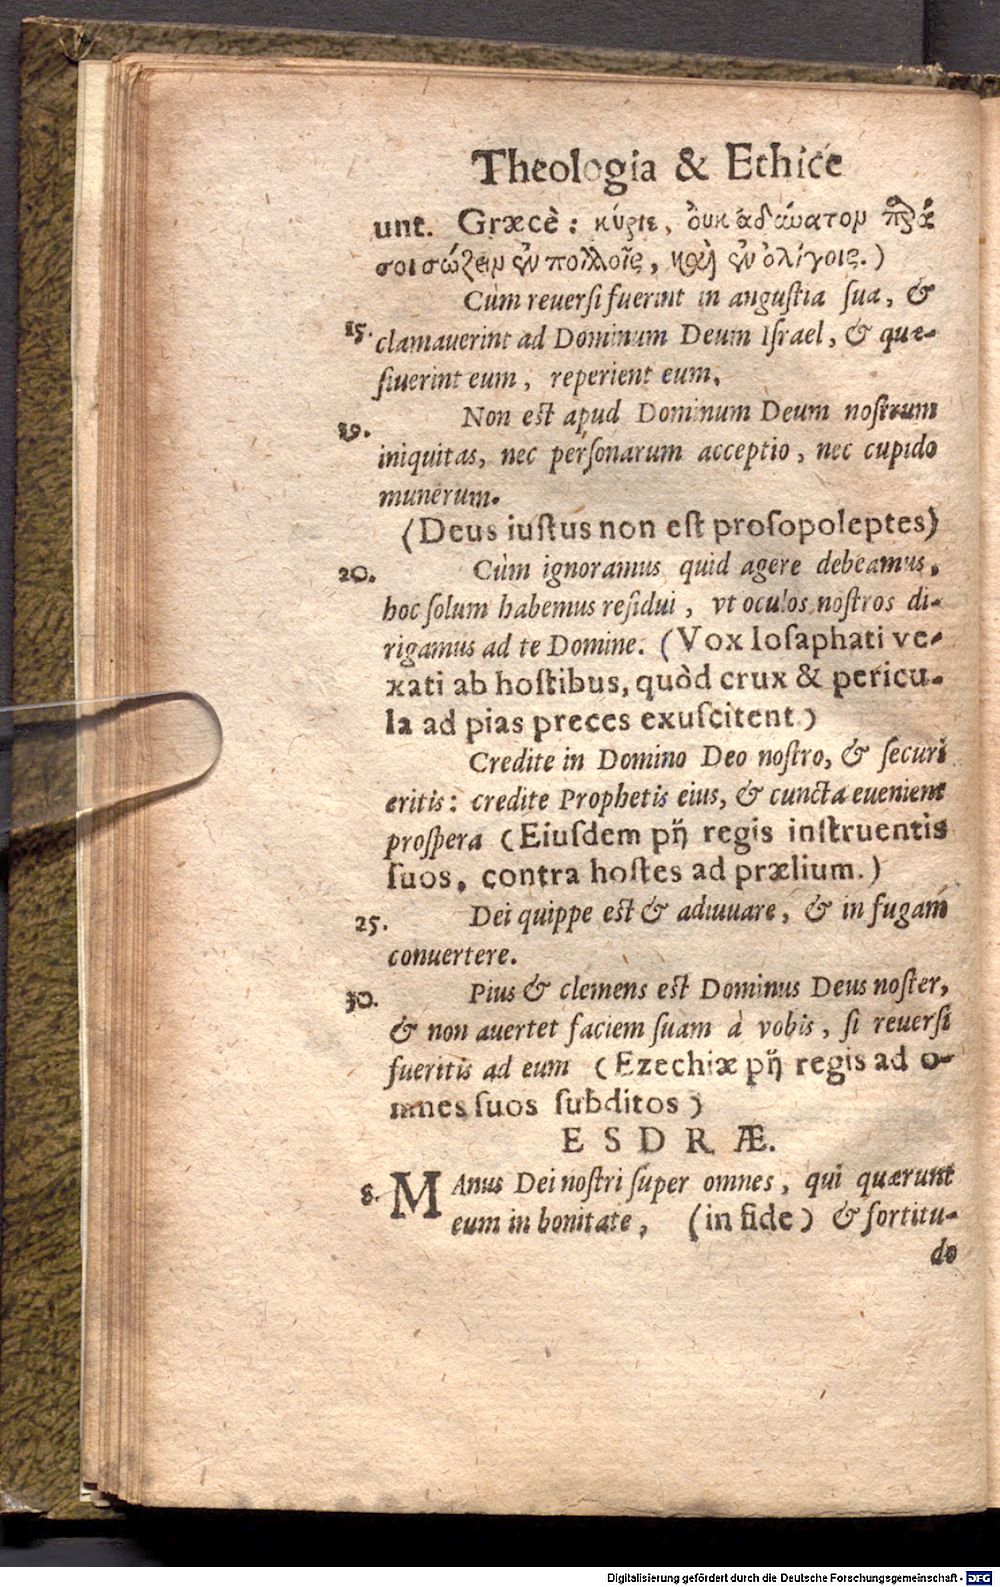 Theologia & Ethice
unt. Græcè: κύριε, ὀυκ ἀδύνατον παρὰ
σοι σώζειν ἐν πολλοῖς, καὶ ἐν ὀλίγοις.)
Cùm reuersi fuerint in angustia sua, &
15. clamauerint ad Dominum Deum Israel, & quæ-
siuerint eum, reperient eum.
Non est apud Dominum Deum nostrum
19. iniquitas, nec personarum acceptio, nec cupido
munerum.
(Deus iustus non est prosopoleptes)
20. Cùm ignoramus quid agere debeamus,
hoc solum habemus residui, vt oculos nostros di-
rigamus ad te Domine. (Vox Iosaphati ve-
xati ab hostibus, quòd crux & pericu-
la ad pias preces exuscitent)
Credite in Domino Deo nostro, & securi
eritis: credite Prophetis eius, & cuncta euenient
prospera (Eiusdem pij regis instruentis
suos, contra hostes ad prælium.)
25. Dei quippe est & adiuuare, & in fugam
conuertere.
30. Pius & clemens est Dominus Deus noster,
& non auertet faciem suam à vobis, si reuersi
fueritis ad eum (Ezechiæ pij regis ad o-
mnes suos subditos)
ESDRÆ.
8. MAnus Dei nostri super omnes, qui quærunt
eum in bonitate, (in fide) & fortitu-
do
Digitalisierung gefördert durch die Deutsche Forschungsgemeinschaft - DFG